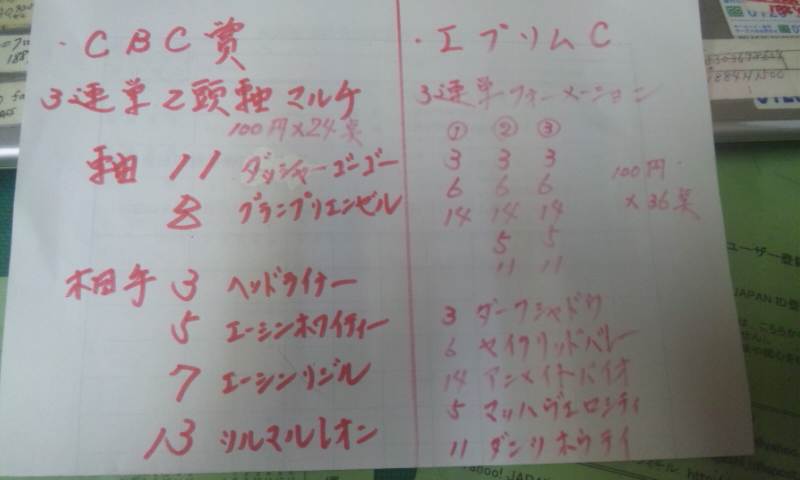 ・CBC賞
3連単2頭軸マルチ
100円×24点
軸 11 ダッシャーゴーゴー
8 グランプリエンゼル
相手 3 ヘッドライナー
5 エーシンホワイティー
7 エーシンリジル
13 シルマルレオン
・エプソムC
3連単フォーメーション
① ② ③
3 3 3
6 6 6
14 14 14
5 5
11 11
100円
×36点
3 ダークシャドウ
6 セイクリッドバレー
14
5 マッハヴェロシティ
11 ダンツホウテイ
ユーザー登録
JAPAN ID登